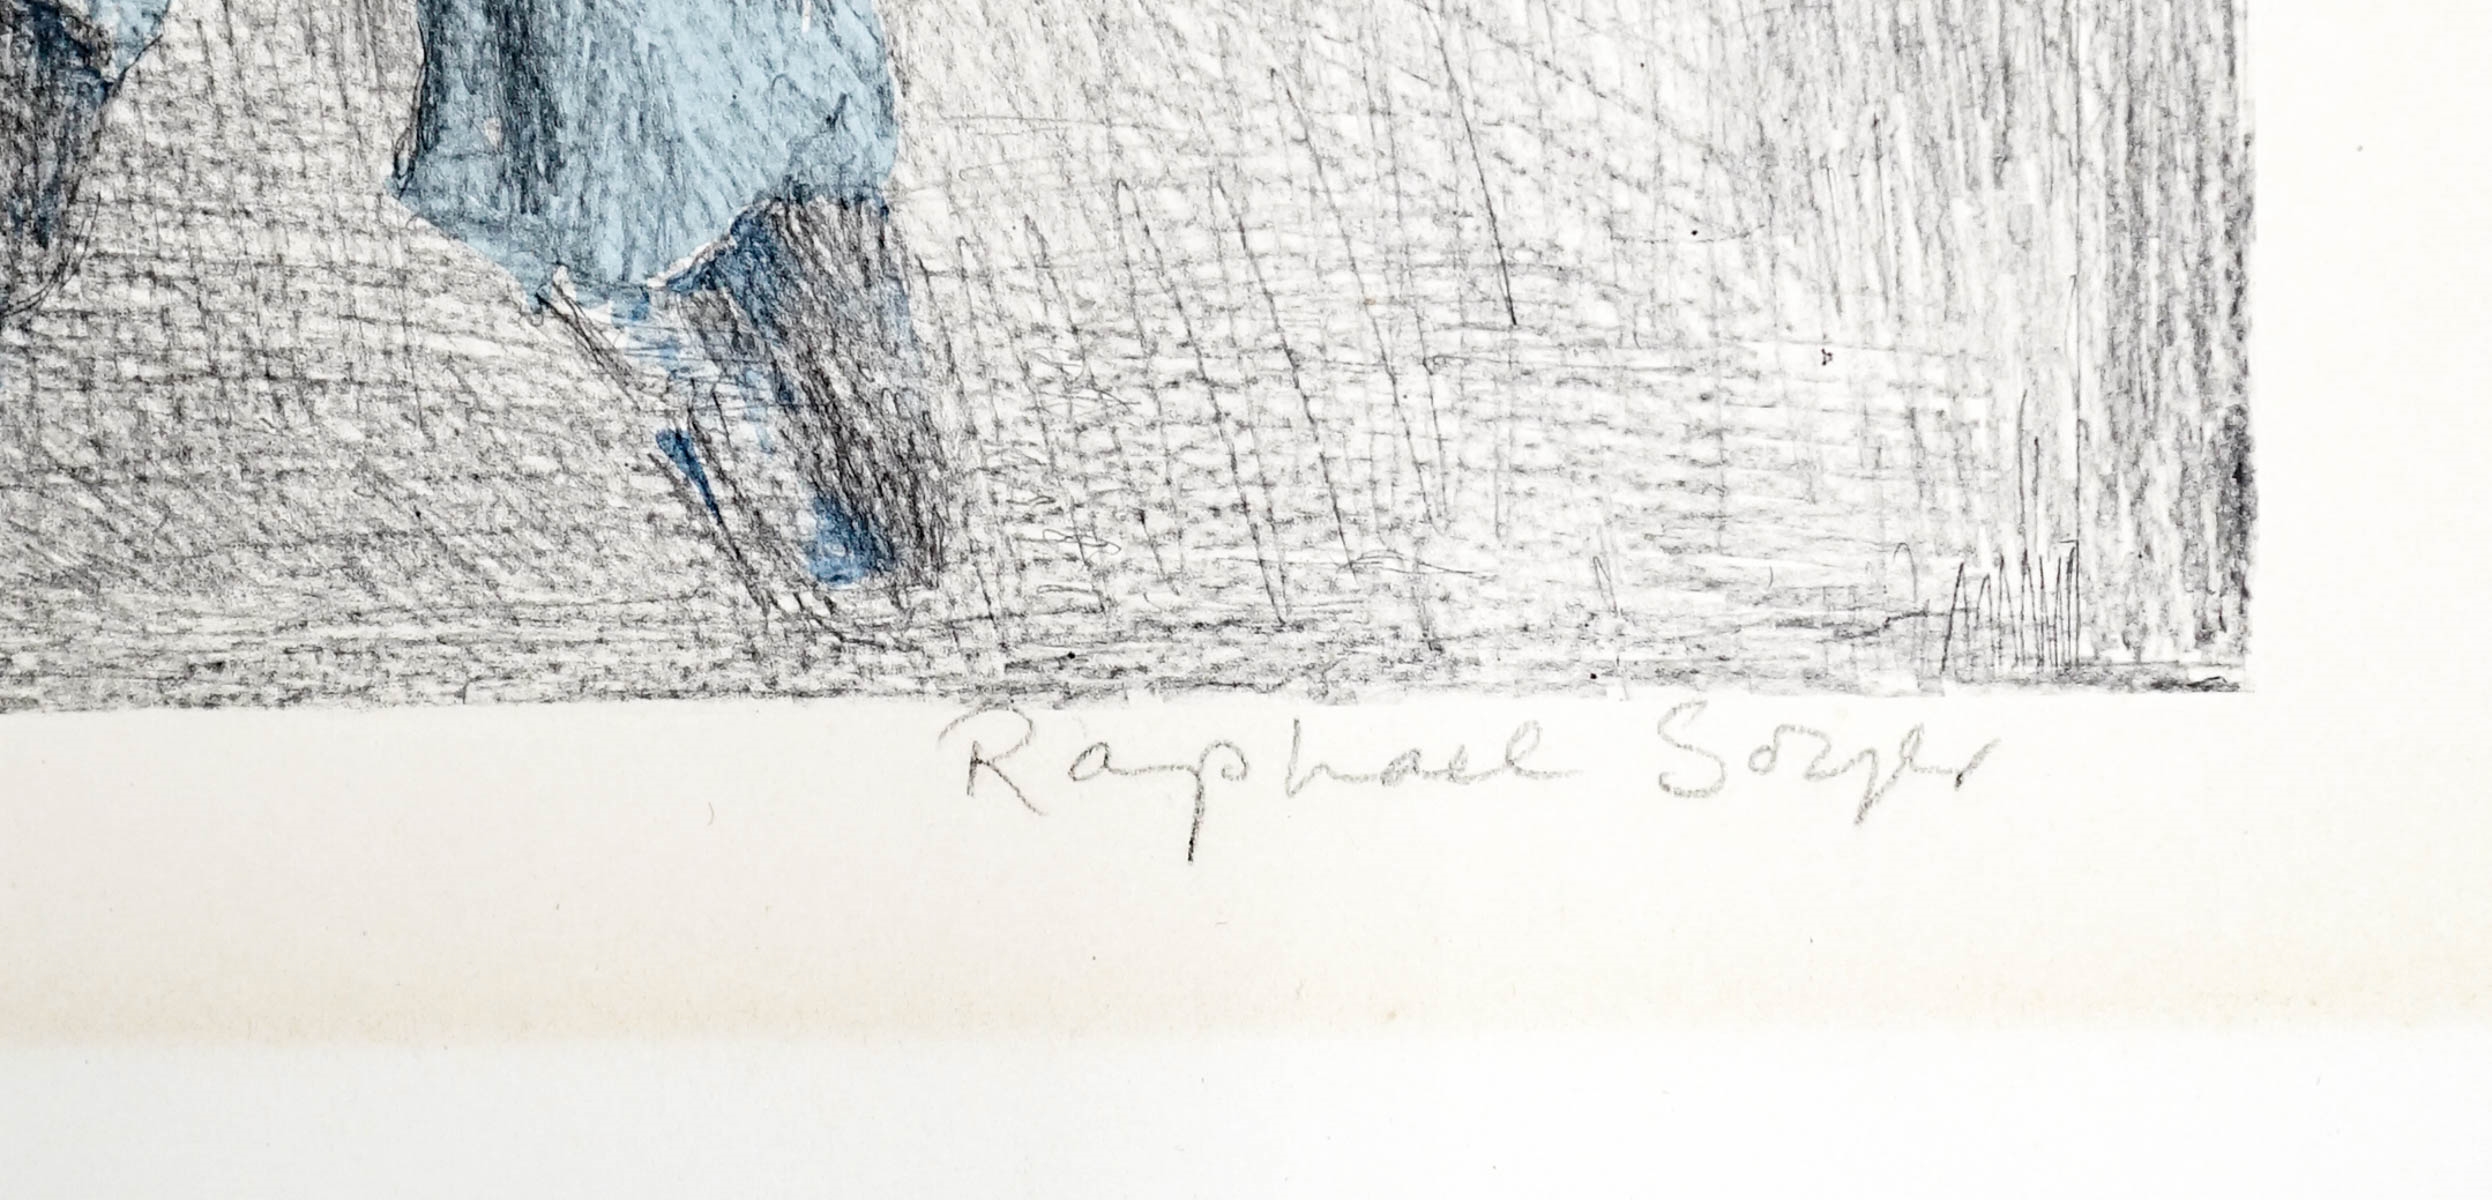 Raphael Soyer